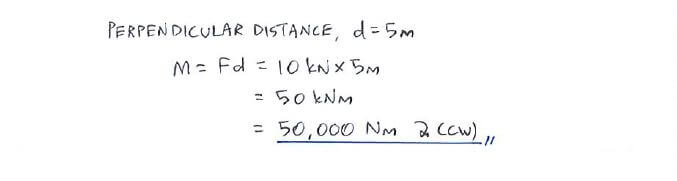 PERPENDICULAR DISTANCE, d = 5m
M = Fd = 10 kN x 5m
= 50 kNm
= 50,000 Nm ↻ (CW) //